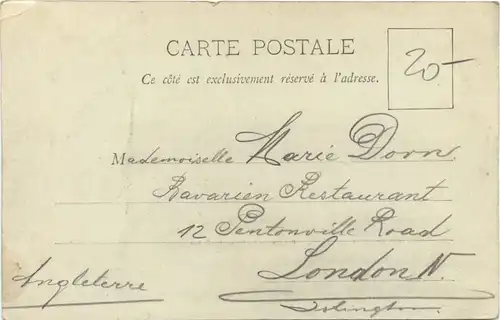 CARTE POSTALE
Ce côté est exclusivement réservé à l'adresse.
20-
Mademoiselle Marie Dorn
Bavarien Restaurant
12 Pentonville Road
London N.
Islington
Angleterre